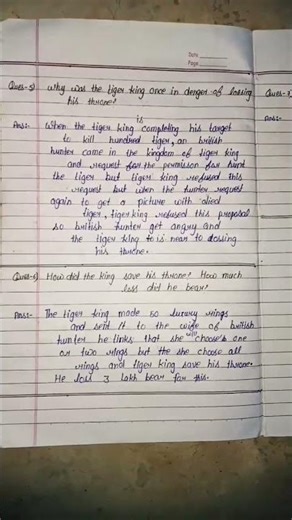 Date
Page
Ques-5) why was the tiger king once in denger of lossing
his throne?
is
Ans:- When the tiger king completing his target
to kill hundred tiger, an british
hunter came in the kingdom of tiger king
and request for the permisson for hunt
the tiger but tiger king refused this
request but when the hunter request
again to get a picture with died
tiger, tiger king refused this proposal
so british hunter get angry and
the tiger king to is near to lossing
his throne.
Ques-6) How did the king save his throne? How much
loss did he bear?
Ans:- The tiger king made 50 luxury rings
and sent it to the wife of british
hunter he links that she will choose one
or two rings but the she choose all
rings and tiger king save his throne.
He loss 3 lakh bear for this.
Ques-
Ans:-